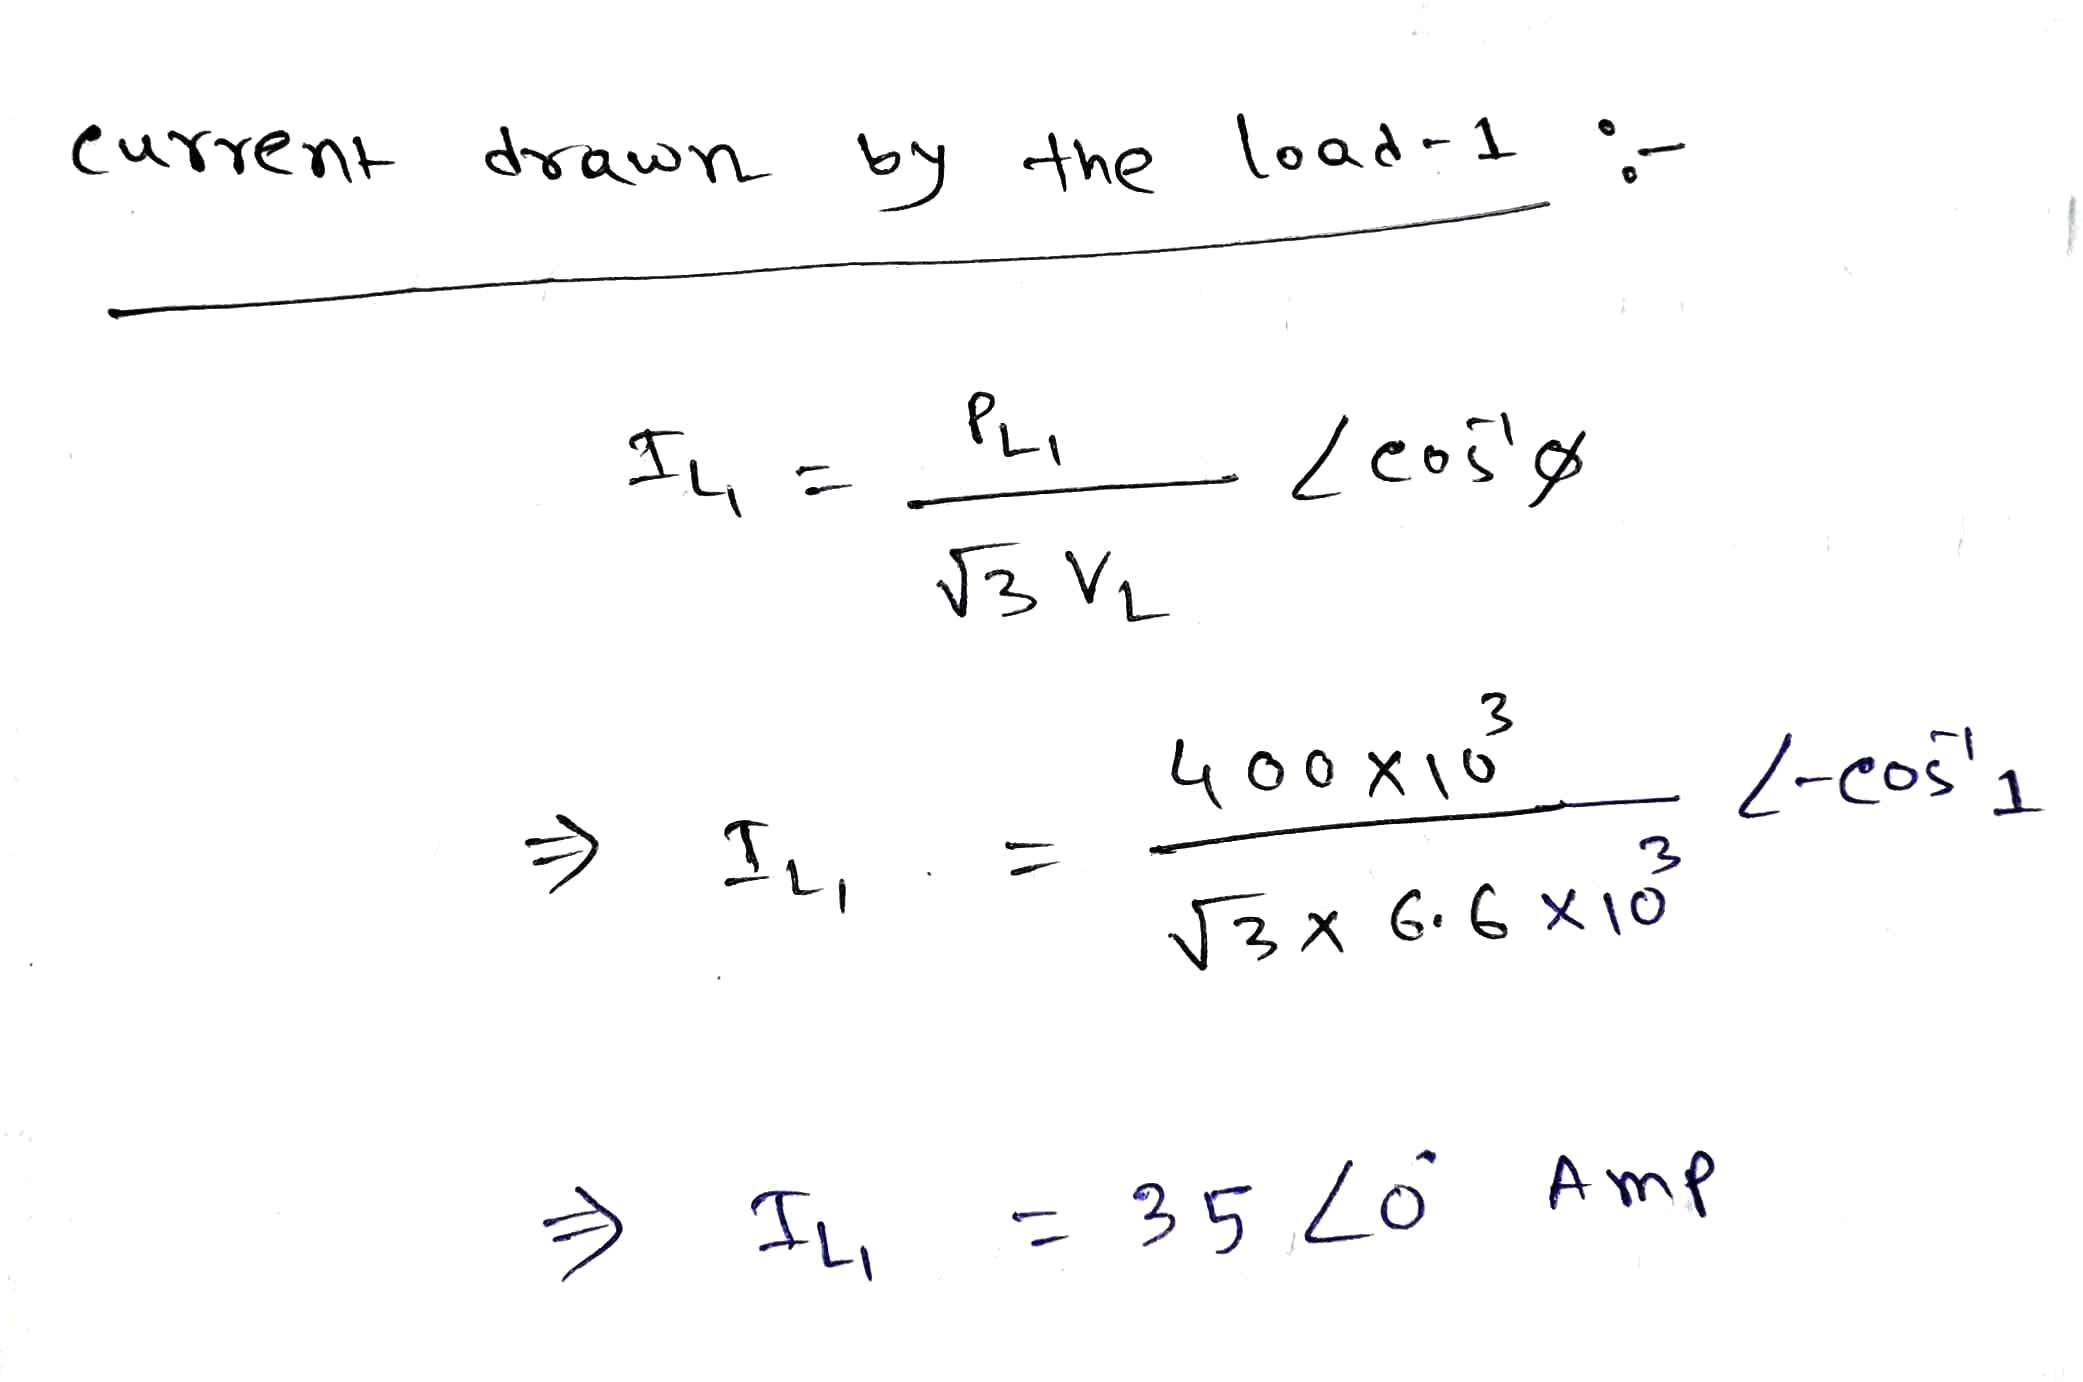 current drawn by the load-1 :-
I_L1 = P_L1 / √3 V_L ∠cos⁻¹ø
⇒ I_L1 = 400×10³ / √3 × 6.6 ×10³ ∠-cos⁻¹1
⇒ I_L1 = 35 ∠0° Amp